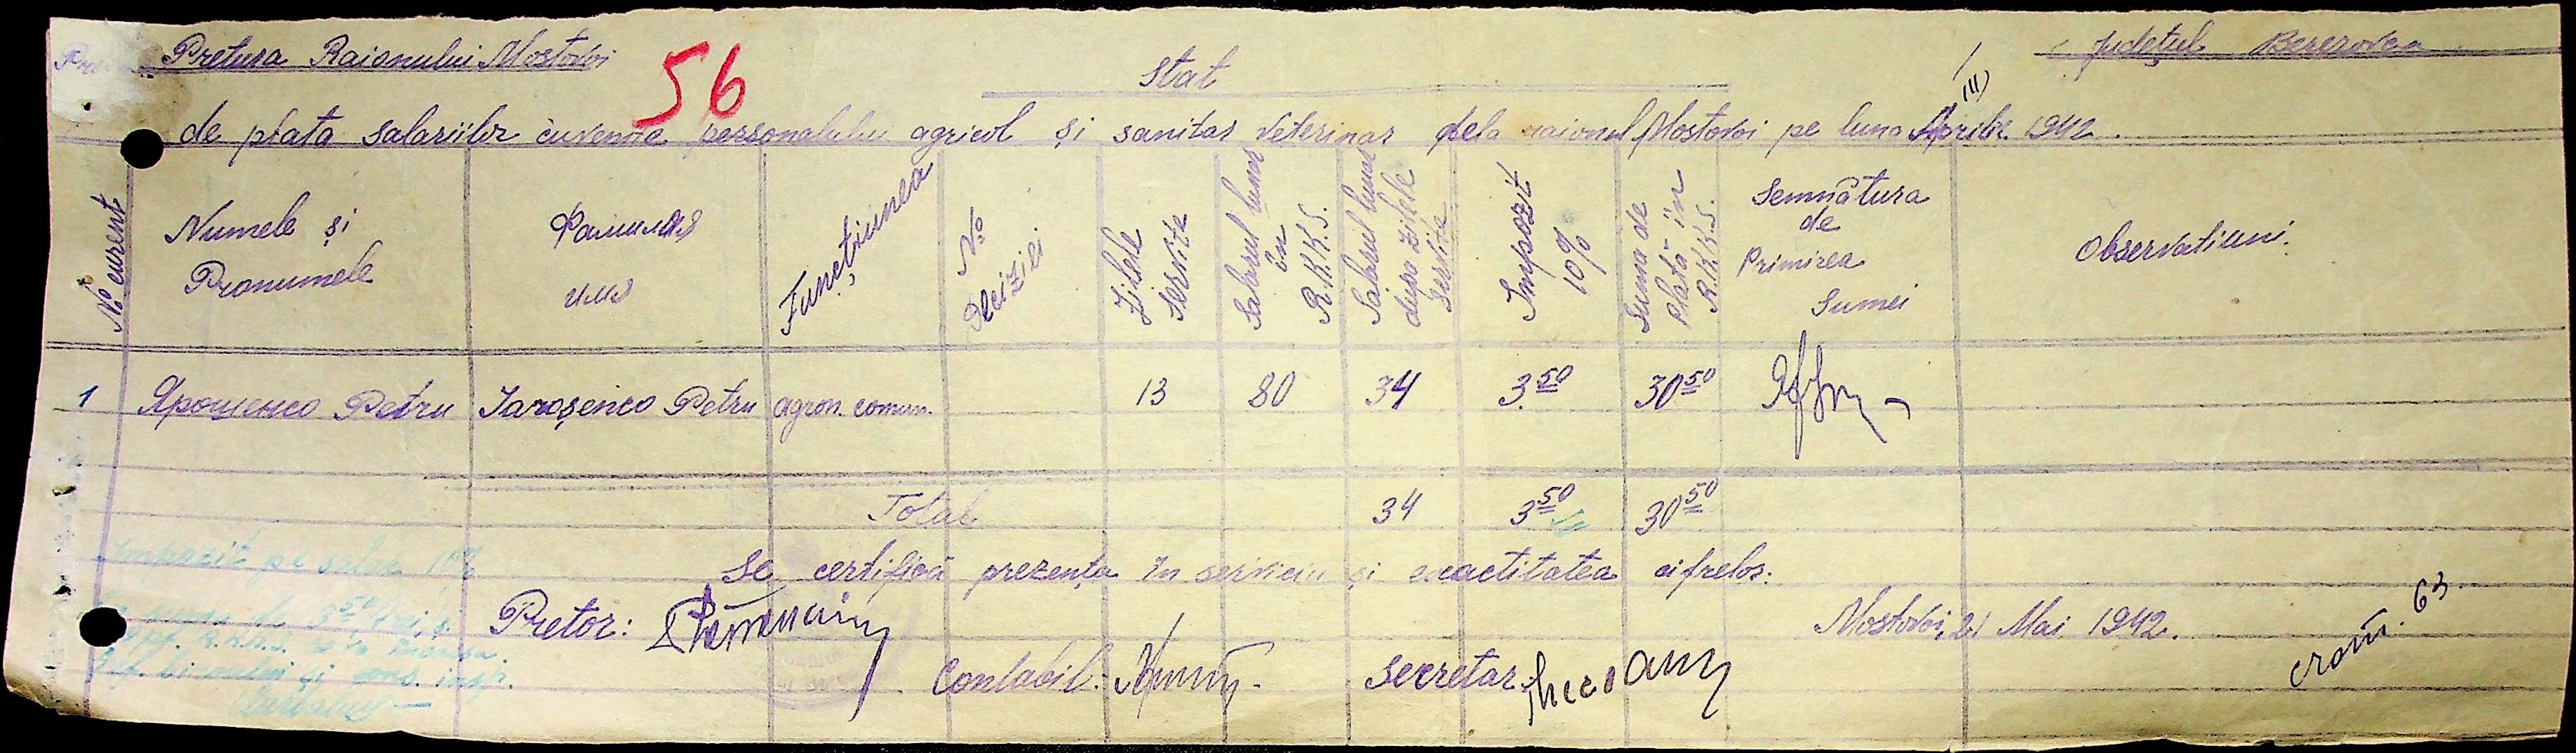 Pretura Raionului Mostovoi
56
Județul Berezovca
Stat
(III)
de plata salariilor cuvenite personalului agricol și sanitar veterinar dela raionul Mostovoi pe luna Aprilie 1942.
No curent
Numele și Pronumele
Фамилия имя
Funcțiunea
No Deciziei
Zilele servite
Salarul lunar în R.K.K.S.
Salarul lunar dupa zilele servite
Impozit 10%
Suma de plată în R.K.K.S.
Semnătura de Primirea Sumei
Observatiuni.
1 Ярошенco Petru Iaroșenco Petru agron. comun. 13 80 34 3.50 30 50
Total 34 3 50 30 50
Impozit pe salar 10%
Se certifică prezența în serviciu și exactitatea cifrelor.
Mostovoi, 21 Mai 1942.
Pretor:
Contabil:
Secretar
63